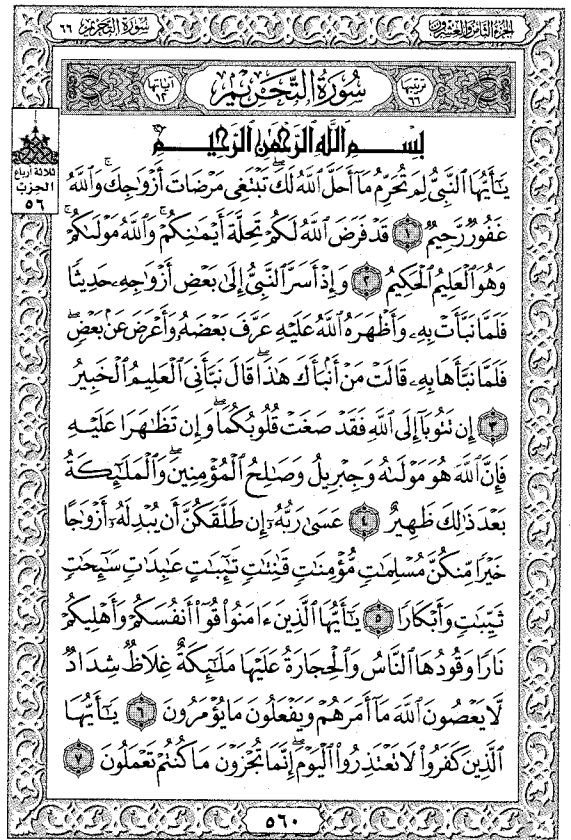 سُورَةُ التَّحْرِيمِ ٦٦
الجُزْءُ الثَّامِنُ وَالعِشْرُون
ترتيبها ٦٦
سُورَةُ التَّحْرِيمِ
آياتها ١٢
بِسْمِ ٱللَّهِ ٱلرَّحْمَٰنِ ٱلرَّحِيمِ
يَٰٓأَيُّهَا ٱلنَّبِيُّ لِمَ تُحَرِّمُ مَآ أَحَلَّ ٱللَّهُ لَكَۖ تَبْتَغِى مَرْضَاتَ أَزْوَٰجِكَۚ وَٱللَّهُ
غَفُورٌ رَّحِيمٌ ١ قَدْ فَرَضَ ٱللَّهُ لَكُمْ تَحِلَّةَ أَيْمَٰنِكُمْۚ وَٱللَّهُ مَوْلَىٰكُمْۖ
وَهُوَ ٱلْعَلِيمُ ٱلْحَكِيمُ ٢ وَإِذْ أَسَرَّ ٱلنَّبِيُّ إِلَىٰ بَعْضِ أَزْوَٰجِهِۦ حَدِيثًا
فَلَمَّا نَبَّأَتْ بِهِۦ وَأَظْهَرَهُ ٱللَّهُ عَلَيْهِ عَرَّفَ بَعْضَهُۥ وَأَعْرَضَ عَنۢ بَعْضٍۖ
فَلَمَّا نَبَّأَهَا بِهِۦ قَالَتْ مَنْ أَنۢبَأَكَ هَٰذَاۖ قَالَ نَبَّأَنِىَ ٱلْعَلِيمُ ٱلْخَبِيرُ
٣ إِن تَتُوبَآ إِلَى ٱللَّهِ فَقَدْ صَغَتْ قُلُوبُكُمَاۖ وَإِن تَظَٰهَرَا عَلَيْهِ
فَإِنَّ ٱللَّهَ هُوَ مَوْلَىٰهُ وَجِبْرِيلُ وَصَٰلِحُ ٱلْمُؤْمِنِينَۖ وَٱلْمَلَٰٓئِكَةُ
بَعْدَ ذَٰلِكَ ظَهِيرٌ ٤ عَسَىٰ رَبُّهُۥٓ إِن طَلَّقَكُنَّ أَن يُبْدِلَهُۥٓ أَزْوَٰجًا
خَيْرًا مِّنكُنَّ مُسْلِمَٰتٍ مُّؤْمِنَٰتٍ قَٰنِتَٰتٍ تَٰٓئِبَٰتٍ عَٰبِدَٰتٍ سَٰٓئِحَٰتٍ
ثَيِّبَٰتٍ وَأَبْكَارًا ٥ يَٰٓأَيُّهَا ٱلَّذِينَ ءَامَنُوا۟ قُوٓا۟ أَنفُسَكُمْ وَأَهْلِيكُمْ
نَارًا وَقُودُهَا ٱلنَّاسُ وَٱلْحِجَارَةُ عَلَيْهَا مَلَٰٓئِكَةٌ غِلَاظٌ شِدَادٌ
لَّا يَعْصُونَ ٱللَّهَ مَآ أَمَرَهُمْ وَيَفْعَلُونَ مَا يُؤْمَرُونَ ٦ يَٰٓأَيُّهَا
ٱلَّذِينَ كَفَرُوا۟ لَا تَعْتَذِرُوا۟ ٱلْيَوْمَۖ إِنَّمَا تُجْزَوْنَ مَا كُنتُمْ تَعْمَلُونَ ٧
ثلاثة أرباع
الحزب
٥٦
٥٦٠